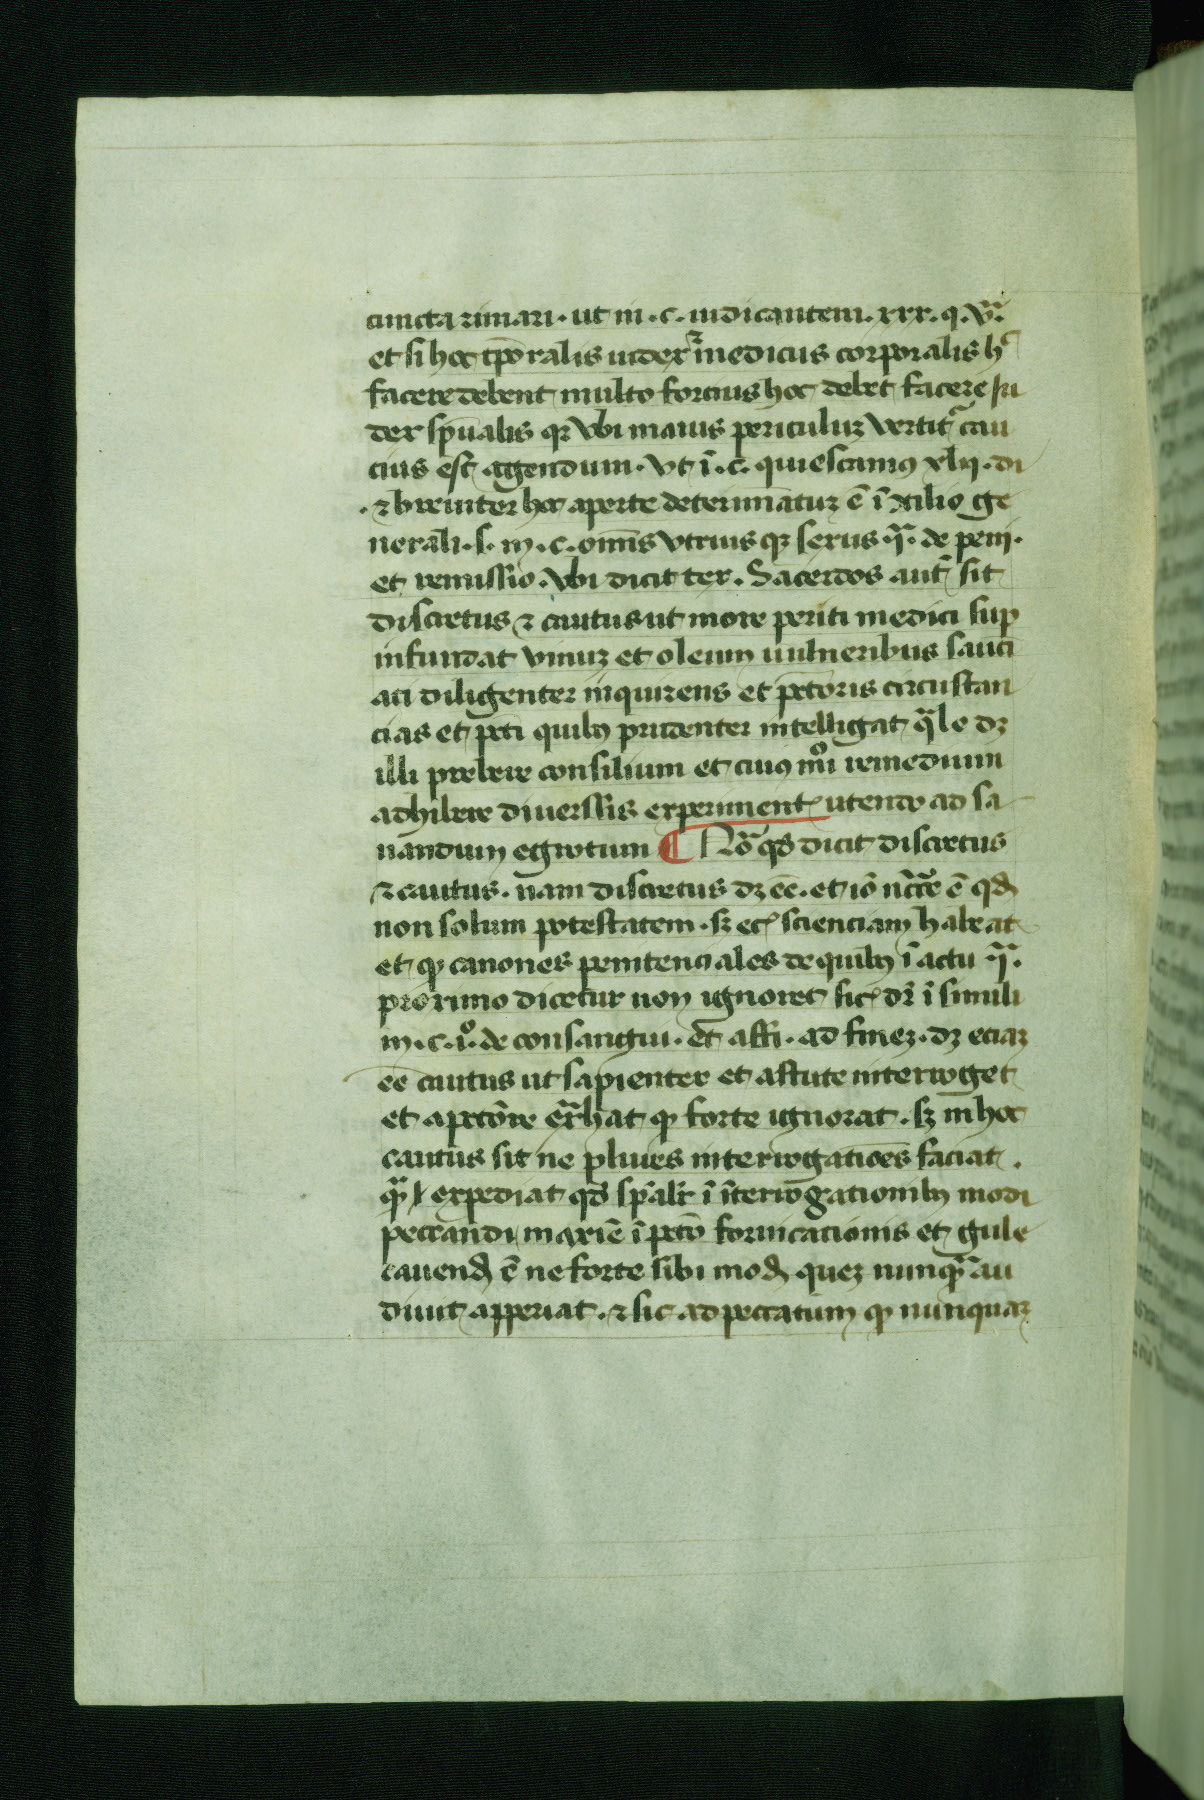 cuncta rimari · ut in · c · iudicantem · xxx · q · vͣ ·
et si hoc tp̄oralis iudex ⁊ medicus corporalis hͦ
facere debent multo forcius hoc debet facere iu
dex sp̄ualis qꝛ vbi maius periculuꝫ vertitᷣ cau
cius est agendum · vt ī · c · quiescamꝰ xlij · di
· ⁊ breuiter hoc aperte determīatuꝫ ē ī ꝯcilio ge
nerali · s · in · c · om̄is vtrius qꝫ sexus · qͣ · de peni ·
et remissio · vbi dicit ter · Sacerdos autē sit
discretus ⁊ cautus ut more periti medici suꝑ
infundat vinuꝫ et oleum uulneribus sauci
ati diligenter inquirens et pctōris circūstan
cias et pcti quibꝰ prudenter intelligat qͣle dꝫ
illi prebere consilium et cuiꝰmōi remedium
adhibere diuersis experimentꝭ utendo ad sa
nandum egrotum ¶ Notͣ qd̄ dicit discretus
⁊ cautus · nam discretus dꝫ eē · et iō nc̄cͣe ē qd̄
non solum potestatem · sꝫ ecͥ scienciam habeat
et ꝙ canones penitenciales de quibꝰ ī actu qͣ ·
proximo dicetur non ignoret sicͭ dr̄ ī simili
in · c · iͦ · de consangui · et affi · ad fineꝫ · dꝫ eciaꝫ
eē cautus ut sapienter et astute interroget
et a pctōre exͣhat ꝙ forte ignorat · sꝫ in hoc
cautus sit ne plures interrogatiōes faciat ·
qͣꝫ expediat qd̄ sp̄alr̄ ī īterrogationibꝰ modi
peccandi maxīe ī pctō fornicationis et gule
cauend̄ ē ne forte sibi mod̄ queꝫ nunqͣꝫ au
diuit apperiat · ⁊ sic ad peccatum ꝙ nunquaꝫ